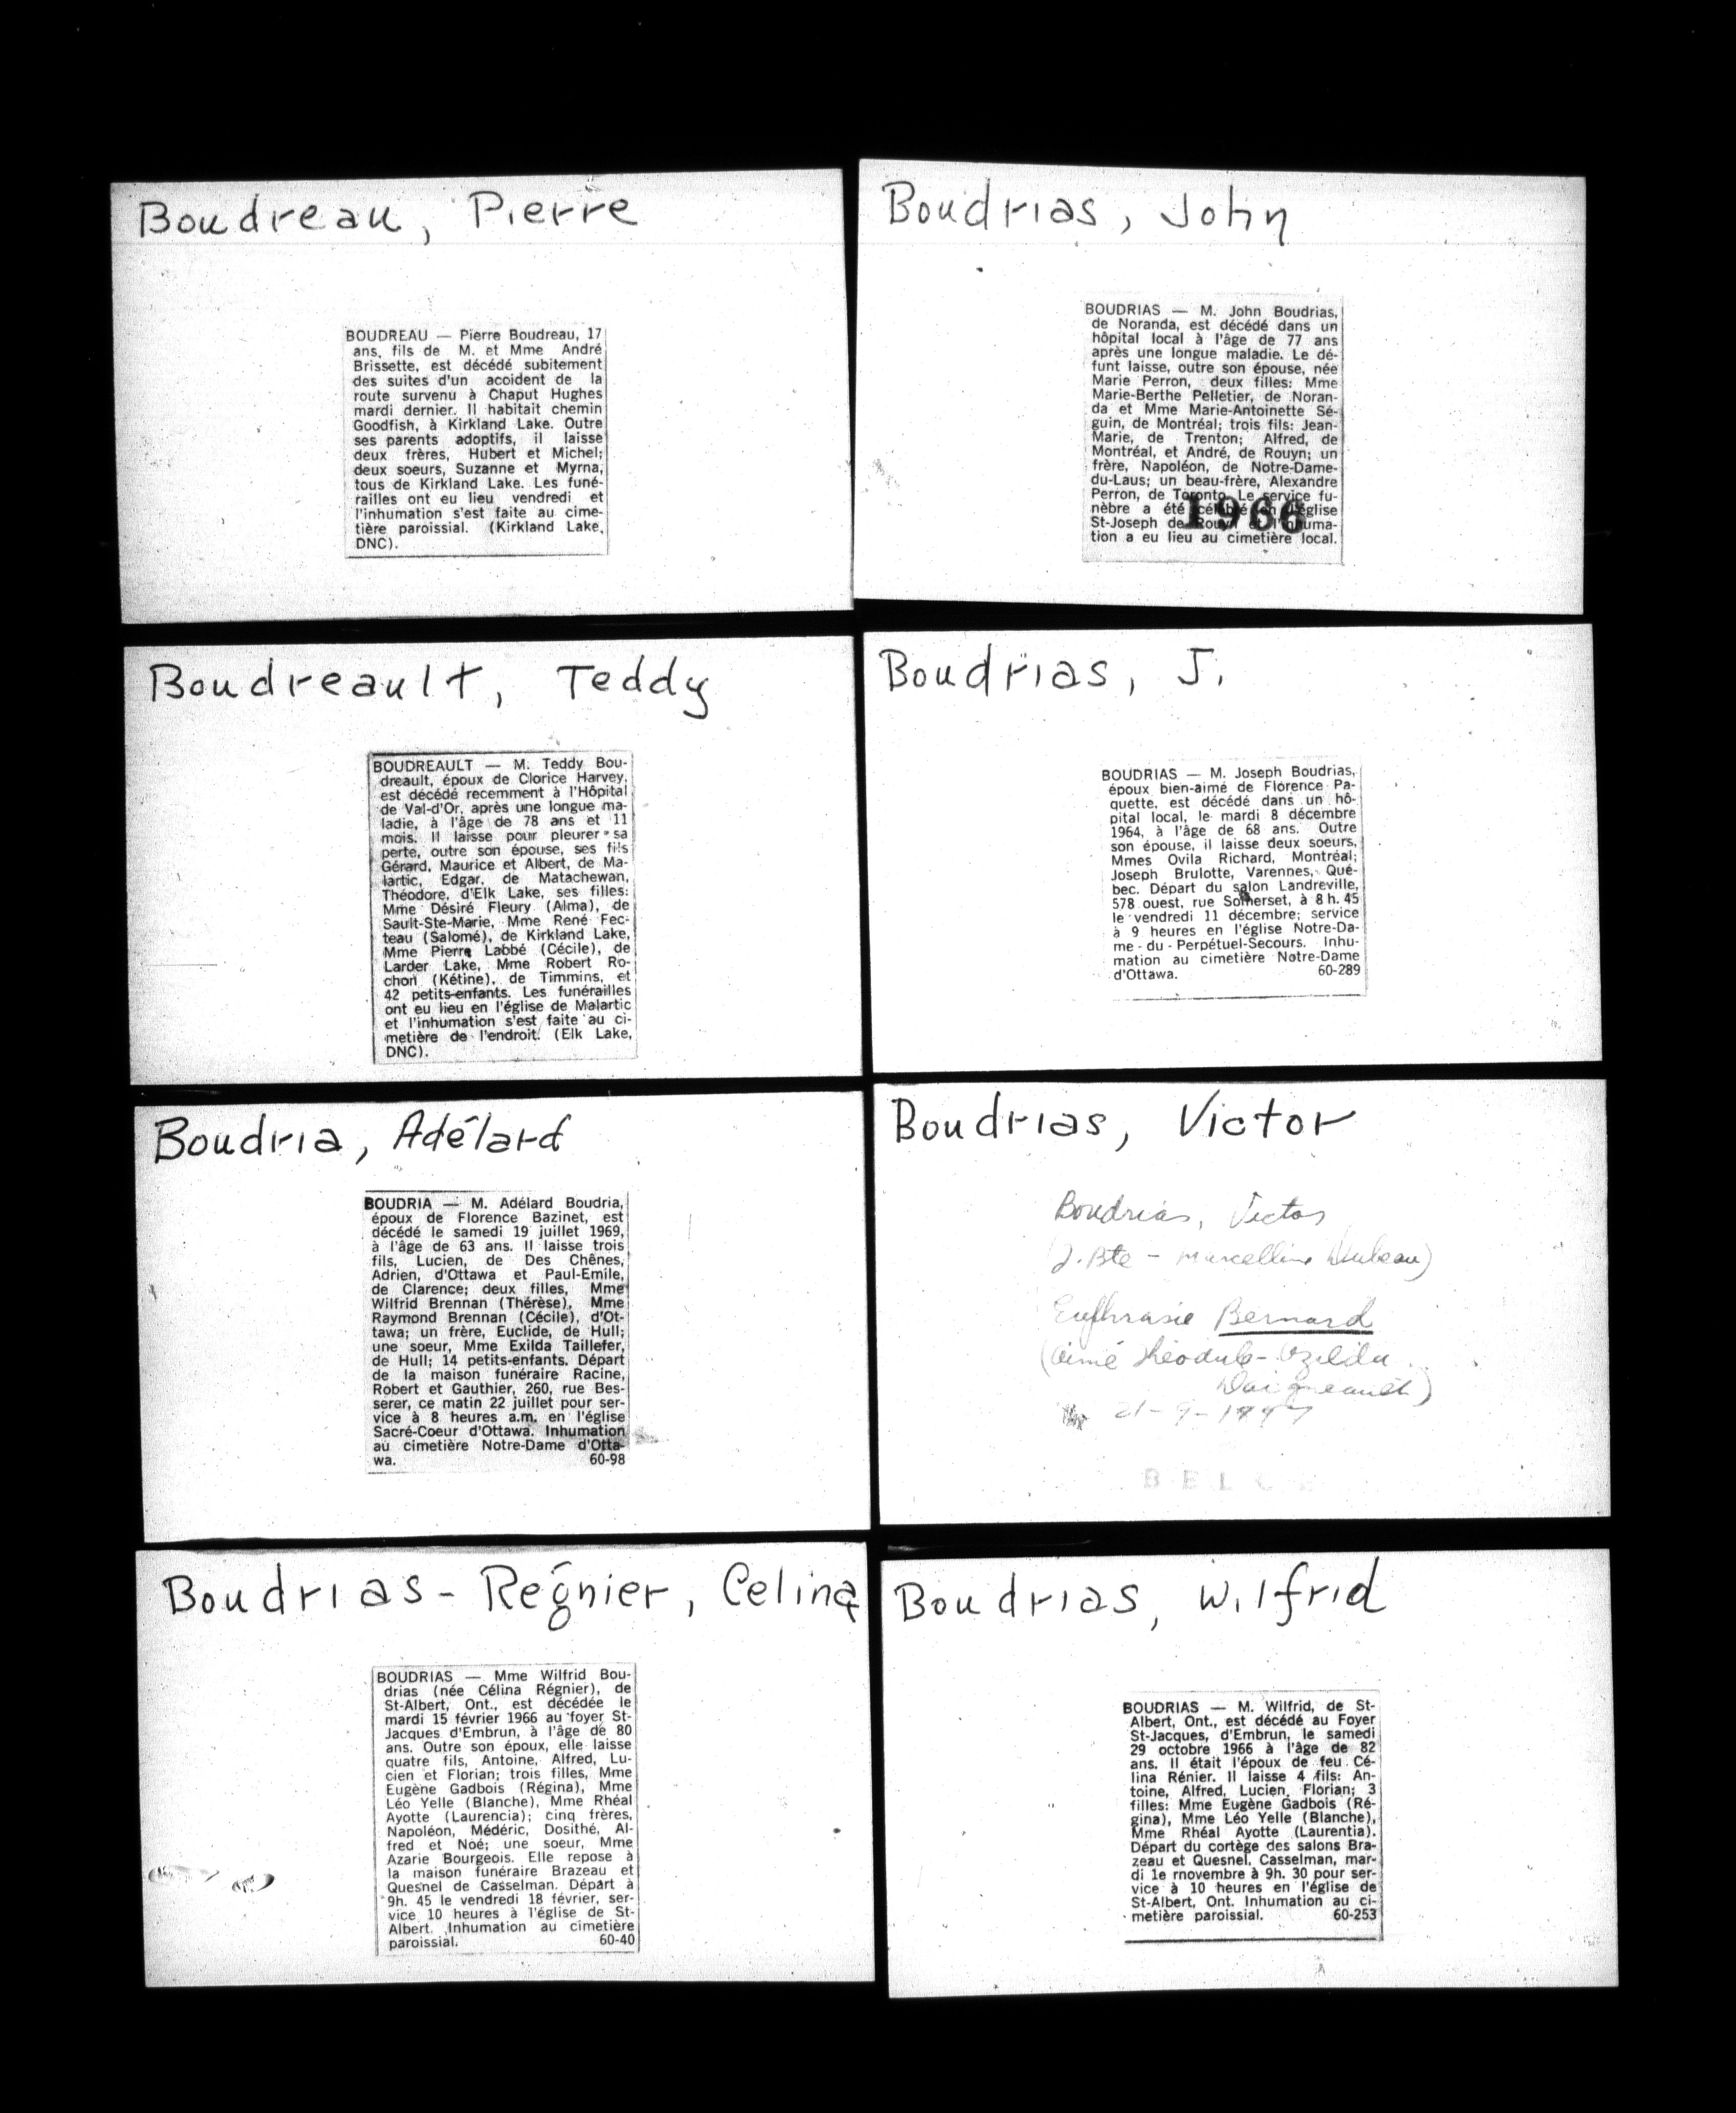 Boudreau, Pierre
BOUDREAU — Pierre Boudreau, 17
ans, fils de M. et Mme André
Brissette, est décédé subitement
des suites d'un acoident de la
route survenu à Chaput Hughes
mardi dernier. Il habitait chemin
Goodfish, à Kirkland Lake. Outre
ses parents adoptifs, il laisse
deux frères, Hubert et Michel;
deux soeurs, Suzanne et Myrna,
tous de Kirkland Lake. Les funé-
railles ont eu lieu vendredi et
l'inhumation s'est faite au cime-
tière paroissial. (Kirkland Lake,
DNC).
Boudrias, John
BOUDRIAS — M. John Boudrias,
de Noranda, est décédé dans un
hôpital local à l'âge de 77 ans
après une longue maladie. Le dé-
funt laisse, outre son épouse, née
Marie Perron, deux filles: Mme
Marie-Berthe Pelletier, de Noran-
da et Mme Marie-Antoinette Sé-
guin, de Montréal; trois fils: Jean-
Marie, de Trenton; Alfred, de
Montréal, et André, de Rouyn; un
frère, Napoléon, de Notre-Dame-
du-Laus; un beau-frère, Alexandre
Perron, de Toronto. Le service fu-
nèbre a été célébré en l'église
St-Joseph de Rouyn et l'inhuma-
tion a eu lieu au cimetière local.
1966
Boudreault, Teddy
BOUDREAULT — M. Teddy Bou-
dreault, époux de Clorice Harvey,
est décédé recemment à l'Hôpital
de Val-d'Or, après une longue ma-
ladie, à l'âge de 78 ans et 11
mois. Il laisse pour pleurer sa
perte, outre son épouse, ses fils
Gérard, Maurice et Albert, de Ma-
lartic, Edgar, de Matachewan,
Théodore, d'Elk Lake, ses filles:
Mme Désiré Fleury (Alma), de
Sault-Ste-Marie, Mme René Fec-
teau (Salomé), de Kirkland Lake,
Mme Pierre Labbé (Cécile), de
Larder Lake, Mme Robert Ro-
chon (Kétine), de Timmins, et
42 petits-enfants. Les funérailles
ont eu lieu en l'église de Malartic
et l'inhumation s'est faite au ci-
metière de l'endroit. (Elk Lake,
DNC).
Boudrias, J.
BOUDRIAS — M. Joseph Boudrias,
époux bien-aimé de Florence Pa-
quette, est décédé dans un hô-
pital local, le mardi 8 décembre
1964, à l'âge de 68 ans. Outre
son épouse, il laisse deux soeurs,
Mmes Ovila Richard, Montréal;
Joseph Brulotte, Varennes, Qué-
bec. Départ du salon Landreville,
578 ouest, rue Somerset, à 8 h. 45
le vendredi 11 décembre; service
à 9 heures en l'église Notre-Da-
me - du - Perpétuel-Secours. Inhu-
mation au cimetière Notre-Dame
d'Ottawa. 60-289
Boudria, Adélard
BOUDRIA — M. Adélard Boudria,
époux de Florence Bazinet, est
décédé le samedi 19 juillet 1969,
à l'âge de 63 ans. Il laisse trois
fils, Lucien, de Des Chênes,
Adrien, d'Ottawa et Paul-Emile,
de Clarence; deux filles, Mme
Wilfrid Brennan (Thérèse), Mme
Raymond Brennan (Cécile), d'Ot-
tawa; un frère, Euclide, de Hull;
une soeur, Mme Exilda Taillefer,
de Hull; 14 petits-enfants. Départ
de la maison funéraire Racine,
Robert et Gauthier, 260, rue Bes-
serer, ce matin 22 juillet pour ser-
vice à 8 heures a.m. en l'église
Sacré-Coeur d'Ottawa. Inhumation
au cimetière Notre-Dame d'Otta-
wa. 60-98
Boudrias, Victor
Boudrias, Victor
(J. Bte - Marcelline
Euphrasie Bernard
(Aimé Théodule - Ozilda
21-9-
Boudrias-Régnier, Celina
BOUDRIAS — Mme Wilfrid Bou-
drias (née Célina Régnier), de
St-Albert, Ont., est décédée le
mardi 15 février 1966 au foyer St-
Jacques d'Embrun, à l'âge de 80
ans. Outre son époux, elle laisse
quatre fils, Antoine, Alfred, Lu-
cien et Florian; trois filles, Mme
Eugène Gadbois (Régina), Mme
Léo Yelle (Blanche), Mme Rhéal
Ayotte (Laurencia); cinq frères,
Napoléon, Médéric, Dosithé, Al-
fred et Noé; une soeur, Mme
Azarie Bourgeois. Elle repose à
la maison funéraire Brazeau et
Quesnel de Casselman. Départ à
9h. 45 le vendredi 18 février, ser-
vice 10 heures à l'église de St-
Albert. Inhumation au cimetière
paroissial. 60-40
Boudrias, Wilfrid
BOUDRIAS — M. Wilfrid, de St-
Albert, Ont., est décédé au Foyer
St-Jacques, d'Embrun, le samedi
29 octobre 1966 à l'âge de 82
ans. Il était l'époux de feu Cé-
lina Rénier. Il laisse 4 fils: An-
toine, Alfred, Lucien, Florian; 3
filles: Mme Eugène Gadbois (Ré-
gina), Mme Léo Yelle (Blanche),
Mme Rhéal Ayotte (Laurentia).
Départ du cortège des salons Bra-
zeau et Quesnel, Casselman, mar-
di 1e rnovembre à 9h. 30 pour ser-
vice à 10 heures en l'église de
St-Albert, Ont. Inhumation au ci-
metière paroissial. 60-253